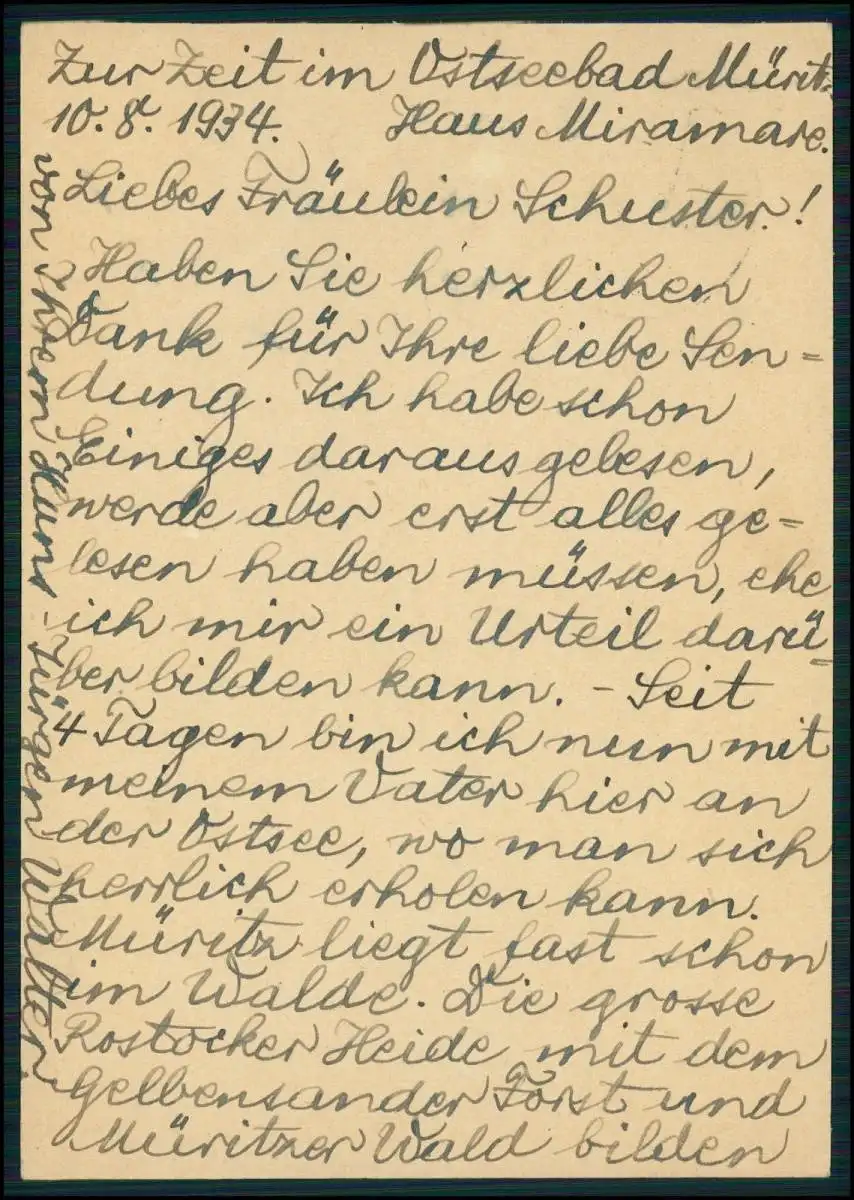 Zur Zeit im Ostseebad Müritz,
10. 8. 1934. Haus Miramare.
Liebes Fräulein Schuster!
Haben Sie herzlichen
Dank für Ihre liebe Sen=
dung. Ich habe schon
Einiges daraus gelesen,
werde aber erst alles ge=
lesen haben müssen, ehe
ich mir ein Urteil darü=
ber bilden kann. - Seit
4 Tagen bin ich nun mit
meinem Vater hier an
der Ostsee, wo man sich
herrlich erholen kann.
Müritz liegt fast schon
im Walde. Die grosse
Rostocker Heide mit dem
Gelbensander Forst und
Müritzer Wald bilden
von Ihrem Hans-Jürgen Walter.